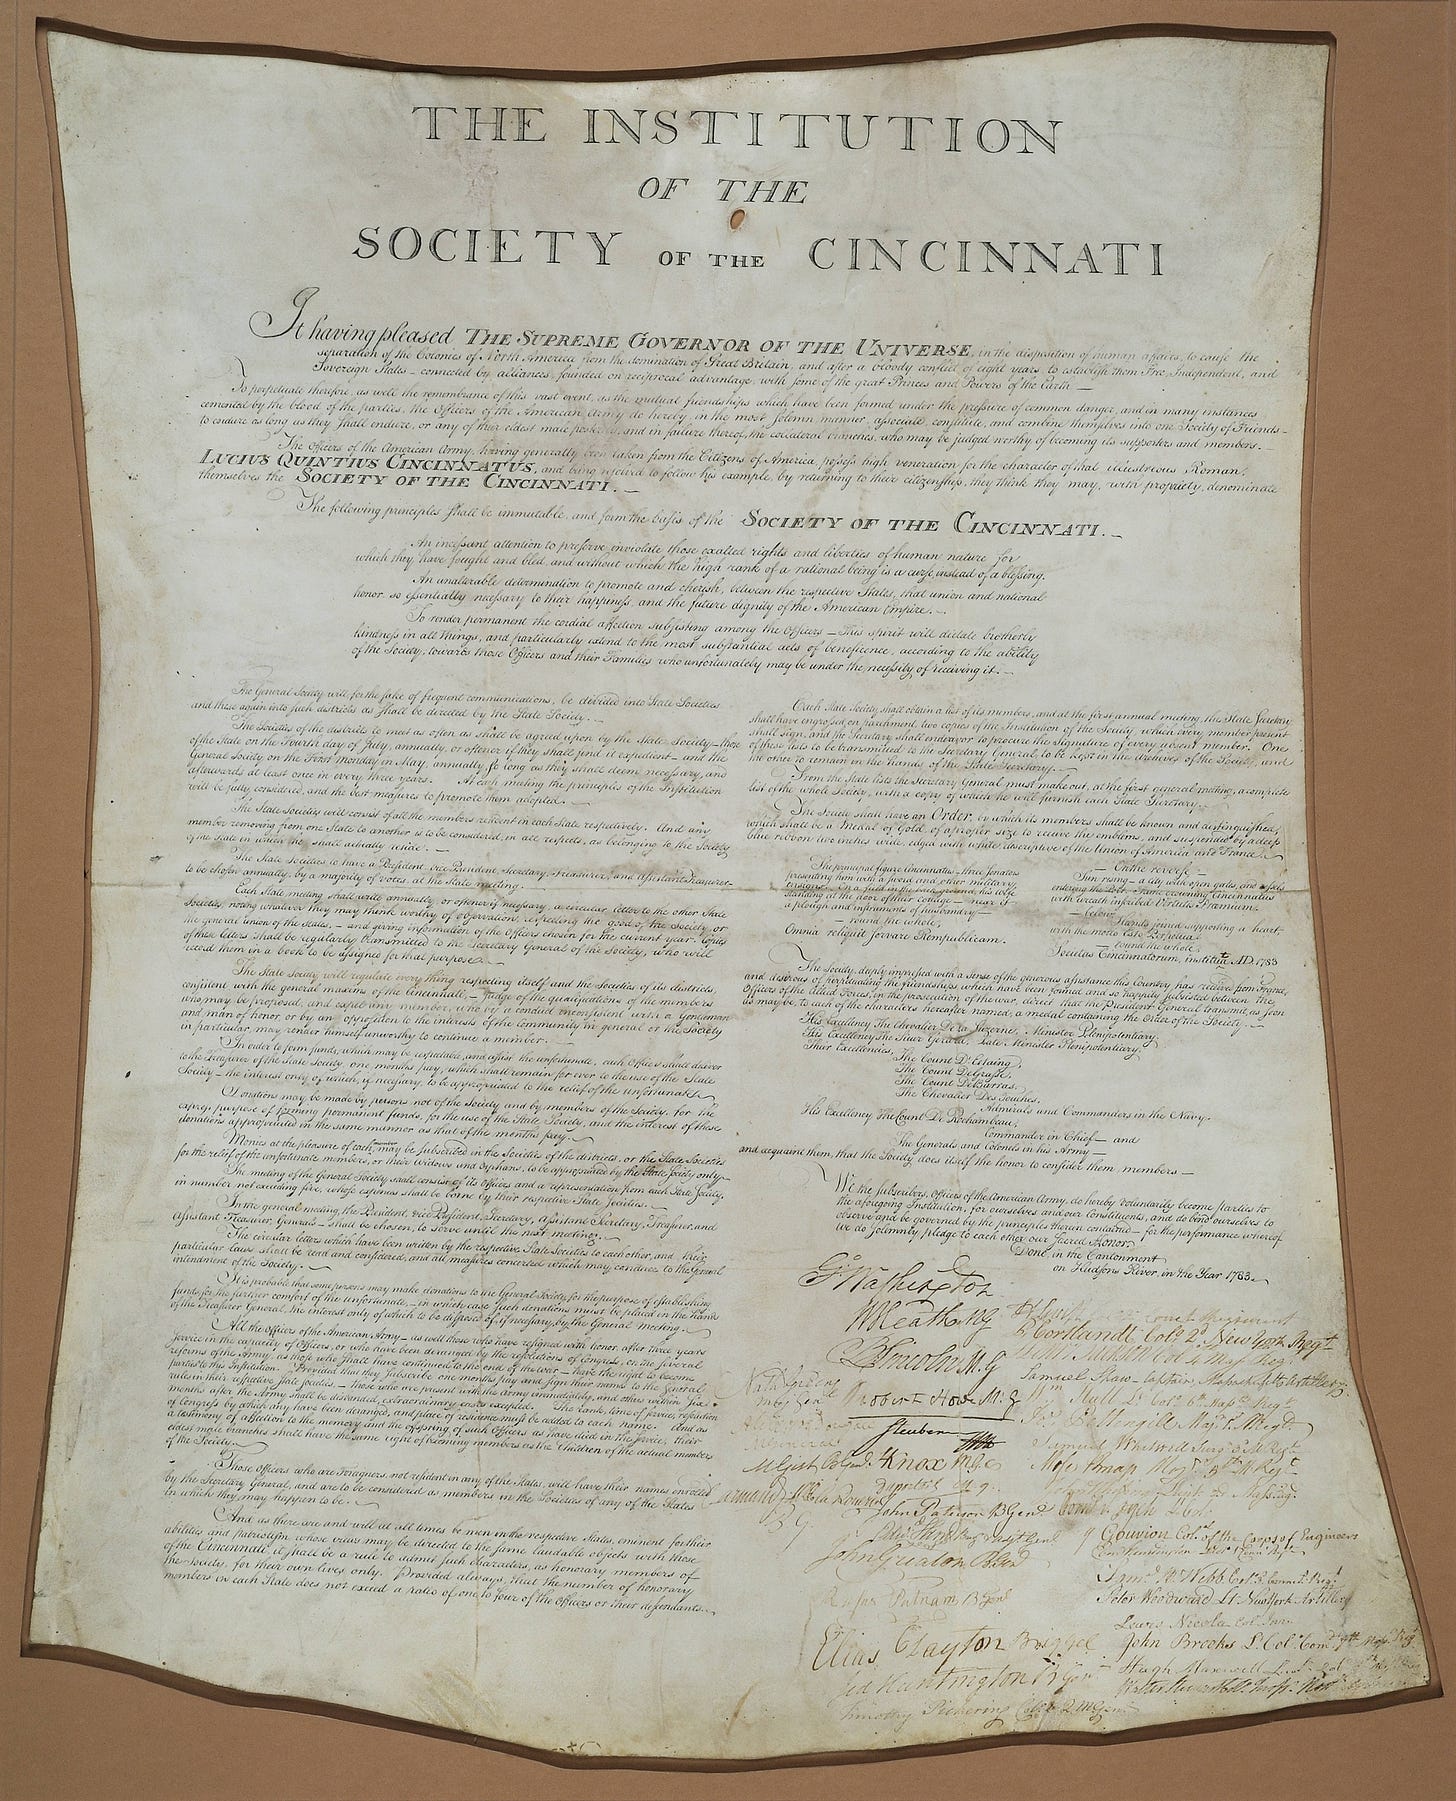 THE INSTITUTION
OF THE
SOCIETY OF THE CINCINNATI
It having pleased THE SUPREME GOVERNOR OF THE UNIVERSE, in the disposition of human affairs, to cause the
separation of the Colonies of North America from the domination of Great Britain, and after a bloody conflict of eight years to establish them Free, Independent, and
Sovereign States – connected by alliances, founded on reciprocal advantage, with some of the great Princes and Powers of the Earth —
To perpetuate therefore, as well the remembrance of this vast event, as the mutual friendships which have been formed under the pressure of common danger, and in many instances
cemented by the blood of the parties, the Officers of the American Army do hereby, in the most solemn manner, associate, constitute, and combine themselves into one Society of Friends –
to endure as long as they shall endure, or any of their eldest male posterity, and in failure thereof, the collateral branches, who may be judged worthy of becoming its supporters and members. –
The Officers of the American Army, having generally been taken from the Citizens of America, possess high veneration for the character of that illustrious Roman,
LUCIUS QUINTIUS CINCINNATUS, and being resolved to follow his example, by returning to their citizenship, they think they may, with propriety, denominate
themselves the SOCIETY OF THE CINCINNATI. –
The following principles shall be immutable, and form the basis of the SOCIETY OF THE CINCINNATI. –
An incessant attention to preserve inviolate those exalted rights and liberties of human nature for
which they have fought and bled, and without which the high rank of a rational being is a curse instead of a blessing.
An unalterable determination to promote and cherish, between the respective States, that union and national
honor so essentially necessary to their happiness, and the future dignity of the American Empire. –
To render permanent the cordial affection subsisting among the Officers – This spirit will dictate brotherly
kindness in all things, and particularly, extend to the most substantial acts of beneficence, according to the ability
of the Society, towards those Officers and their Families who unfortunately may be under the necessity of receiving it. –
The General Society will, for the sake of frequent communications, be divided into State Societies
and these again into such districts as shall be directed by the State Society. –
The Societies of the districts to meet as often as shall be agreed upon by the State Society – those
of the State on the Fourth day of July, annually, or oftener if they shall find it expedient – and the
General Society on the First Monday in May, annually, so long as they shall deem necessary, and
afterwards at least once in every three years. At each meeting the principles of the Institution
will be fully considered, and the best measures to promote them adopted. –
The State Societies will consist of all the members resident in each State respectively. And any
member removing from one State to another is to be considered, in all respects, as belonging to the Society
of the State in which he shall actually reside. –
The State Societies to have a President, vice President, Secretary, Treasurer, and assistant Treasurer –
to be chosen annually, by a majority of votes, at the State meeting.
Each State meeting shall write annually, or oftener if necessary, a circular letter to the other State
Societies noting whatever they may think worthy of observation, respecting the good of the Society or
the general union of the States, – and giving information of the Officers chosen for the current year. Copies
of these letters shall be regularly transmitted to the Secretary General of the Society, who will
record them in a book to be assigned for that purpose.
The State Society will regulate every thing respecting itself and the Societies of its districts,
consistent with the general maxims of the Cincinnati, – judge of the qualifications of the members
who may be proposed, and expel any member, who by a conduct inconsistent with a Gentleman
and man of honor or by an opposition to the interests of the Community in general or the Society
in particular, may render himself unworthy to continue a member. –
In order to form funds, which may be respectable, and assist the unfortunate, each Officer shall deliver
to the Treasurer of the State Society, one months pay, which shall remain for ever to the use of the State
Society – the interest only of which, if necessary, to be appropriated to the relief of the unfortunate
Donations may be made by persons not of the Society, and by members of the Society, for the
express purpose of forming permanent funds, for the use of the State Society, and the interest of these
donations appropriated in the same manner as that of the months pay. –
Monies at the pleasure of each member may be subscribed in the Societies of the districts, or the State Societies
for the relief of the unfortunate members, or their Widows and Orphans, to be appropriated by the State Society only –
The meeting of the General Society shall consist of its Officers and a representation from each State Society,
in number not exceeding five, whose expences shall be borne by their respective State Societies. –
In the general meeting, the President, vice President, Secretary, Assistant Secretary, Treasurer, and
Assistant Treasurer Generals – shall be chosen, to serve until the next meeting. –
The circular letters which have been written by the respective State Societies to each other, and their
particular laws shall be read and considered, and all measures concerted which may conduce to the general
intendment of the Society. –
It is probable that some persons may make donations to the General Society for the purpose of establishing
funds, for the further comfort of the unfortunate, – in which case such donations must be placed in the hands
of the Treasurer General, the interest only of which to be disposed of, if necessary, by the General meeting. –
All the Officers of the American Army – as well those who have resigned with honor, after three years
service in the capacity of Officers, or who have been deranged by the resolutions of Congress, on the several
reforms of the Army, as those who shall have continued to the end of the war – have the right to become
parties to this Institution. Provided that they subscribe one months pay and sign their names to the General
rules in their respective State Societies – those who are present with the army immediately, and others within six
months after the Army shall be disbanded, extraordinary cases excepted. The rank, time of service, resolution
of Congress by which any have been deranged, and place of residence must be added to each name. And as
a testimony of affection to the memory and the offspring of such Officers as have died in the service, their
eldest male branches shall have the same right of becoming members as the Children of the actual members
of the Society. –
Those Officers who are Foreigners, not resident in any of the States, will have their names enrolled
by the Secretary General, and are to be considered as members in the Societies of any of the States
in which they may happen to be. –
And as there are and will at all times be men in the respective States, eminent for their
abilities and patriotism, whose views may be directed to the same laudable objects with those
of the Cincinnati, it shall be a rule to admit such characters, as honorary members of
the Society, for their own lives only. Provided always, that the number of honorary
members in each State does not exceed a ratio of one to four of the Officers or their descendants. –
Each State Society shall obtain a list of its members, and at the first annual meeting, the State Secretary
shall have engrossed, on parchment, two copies of the Institution of the Society, which every member present
shall sign, and the Secretary shall endeavor to procure the Signature of every absent member. One
of these lists to be transmitted to the Secretary General, to be kept in the archives of the Society, and
the other to remain in the hands of the State Secretary. –
From the State lists the Secretary General must make out, at the first general meeting, a complete
list of the whole Society, with a copy of which he will furnish each State Secretary. –
The Society shall have an Order, by which its members shall be known and distinguished,
which shall be a Medal of Gold, of a proper size to recieve the emblems, and suspended by a deep
blue ribbon two inches wide, edged with white, descriptive of the Union of America and France. –
The principal figure Cincinnatus – three Senators
presenting him with a sword and other military
ensigns. On a field in the back ground, his wife
standing at the door of their cottage – near it
a plough and instruments of husbandry –
– round the whole,
Omnia reliquit servare Rempublicam.
– On the reverse –
Sun rising – a City with open gates, and vessels
entering the Port – Fame crowning Cincinnatus
with wreath inscribed Virtutis Præmium.
– below –
Hands joined supporting a heart
with the motto Esto Perpetua.
– round the whole
Societas Cincinnatorum, instituta AD. 1783
The Society, deeply impressed with a sense of the generous assistance this Country has recieved from France,
and desirous of perpetuating the friendships which have been formed, and so happily subsisted between the
Officers of the Allied Forces, in the prosecution of the war, direct that the President General transmit, as soon
as may be, to each of the characters hereafter named, a medal containing the Order of the Society. –
His Excellency The Chevalier De la Luzerne, Minister Plenipotentiary.
His Excellency The Sieur Gerard, Late Minister Plenipotentiary.
Their Excellencies,
The Count D'Estaing,
The Count DeGrasse,
The Count DeBarras,
The Chevalier Des Touches,
Admirals and Commanders in the Navy.
His Excellency The Count De Rochambeau,
Commander in Chief – and
The Generals and Colonels in his Army –
and acquaint them, that the Society does itself the honor to consider them members –
We the subscribers, officers of the American Army, do hereby voluntarily become parties to
the aforegoing Institution, for ourselves and our Constituents, and do bind ourselves to
observe and be governed by the principles therein contained – for the performance whereof
we do solemnly pledge to each other our Sacred Honor. –
Done, in the Cantonment
on Hudsons River, in the Year 1783. –
Go Washington
W Heath M G
B Lincoln M. G
Robert Howe M. G
Steuben
H Knox M G
John Paterson B Genl
John Greaton B Gen
Rufus Putnam B Genl
Elias Dayton
Jed Huntington B Genl
Timothy Pickering
Cortlandt Colo 2d New York Regt
Samuel Shaw – captain, Massachusetts Artillery
Wm Hull
Samuel Whitwell Surg
Moses Knap Majr
Gouvion Col. of the Corps of Engineers
Peter Woodward Lt New York Artillery
Lewis Nicola Col Inv.
John Brooks Lt Colo Comdt
Hugh Maxwell